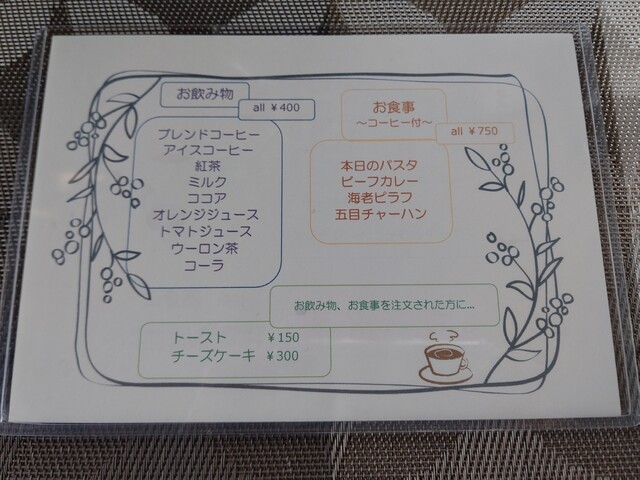 お飲み物
all ¥400
ブレンドコーヒー
アイスコーヒー
紅茶
ミルク
ココア
オレンジジュース
トマトジュース
ウーロン茶
コーラ
お食事
～コーヒー付～
all ¥750
本日のパスタ
ビーフカレー
海老ピラフ
五目チャーハン
お飲み物、お食事を注文された方に...
トースト ¥150
チーズケーキ ¥300